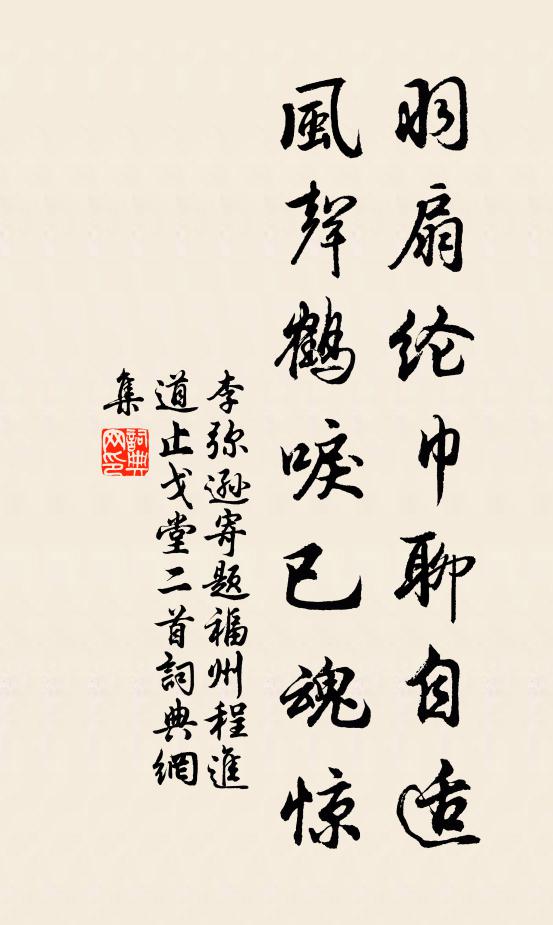 羽扇纶巾聊自适
風聲鶴唳已魂惊
李弥遜寄題福州程進
道止戈堂二首詞典網
集
詞典网印